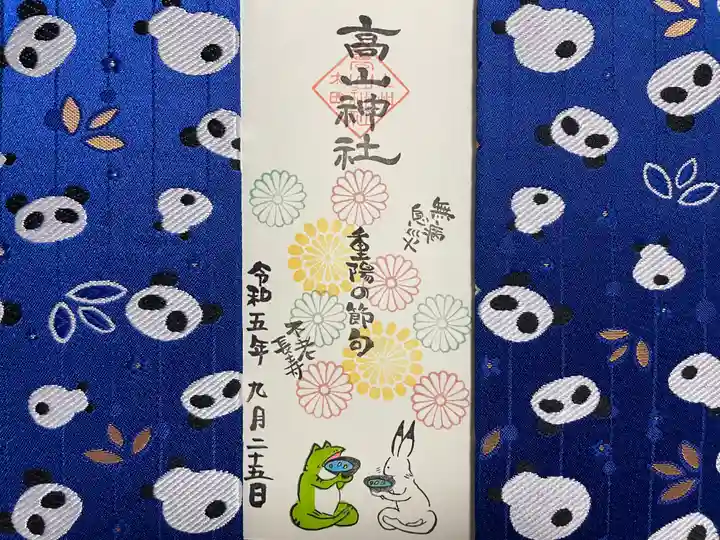 高山神社
無病
息災
重陽の節句
不老
長寿
令和五年 九月二十五日